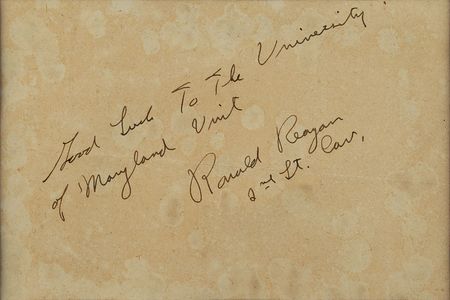 Good Luck To The University
of Maryland Unit
Ronald Reagan
2nd Lt. Cav.